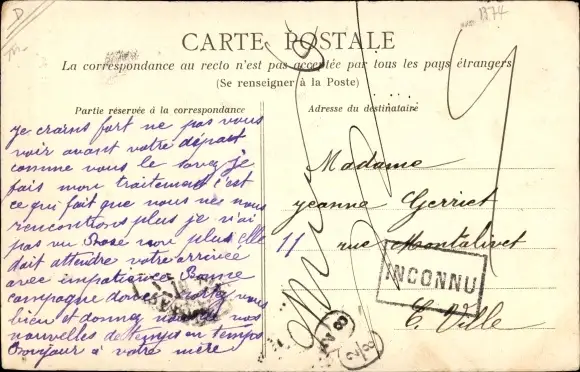 1874
CARTE POSTALE
La correspondance au recto n'est pas acceptée par tous les pays étrangers
(Se renseigner à la Poste)
Partie réservée à la correspondance
Je crains fort ne pas vous
voir avant votre départ
comme vous le savez je
fais mon traitement c'est
ce qui fait que nous nee nous
rencontrions plus je n'ai
pas vu Rose non plus elle
doit attendre votre arrivée
avec impatience Bonne
campagne donc portez vous
bien et donnez nous de vos
nouvelles de temps en temps
Bonjour à votre mère
Adresse du destinataire
Madame
Jeanne Gerriet
11 rue Montalivet
E. Ville
INCONNU